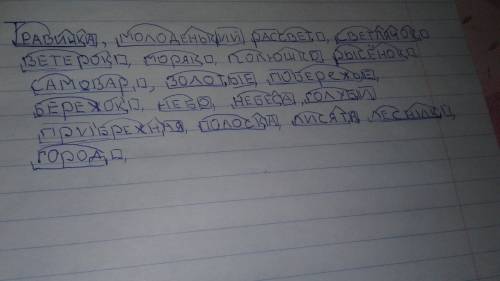 Травинка, молоденький рассвет, светлячок
ветерок, моряк, полюшко рысёнок
самовар, золотые, побережье,
бережок, небо, небеса, голуби
прибрежная, полоска, лисята лесник,
город,